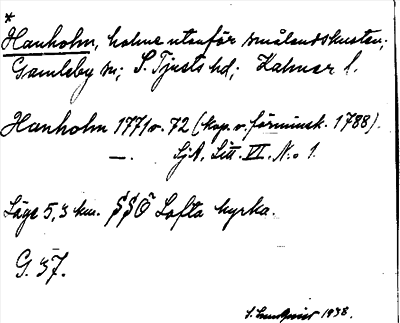 *
Hanholm, holme utanför smålandskusten;
Gamleby sn; S. Tjusts hd; Kalmar l.
Hanholm 1771 o. 72 (kop. o. förminsk. 1788).
—. SjA. Litt. VI. N:o 1.
Läge 5,3 km. SSO Lofta kyrka.
G. 37.
S. Lundqvist 1938.